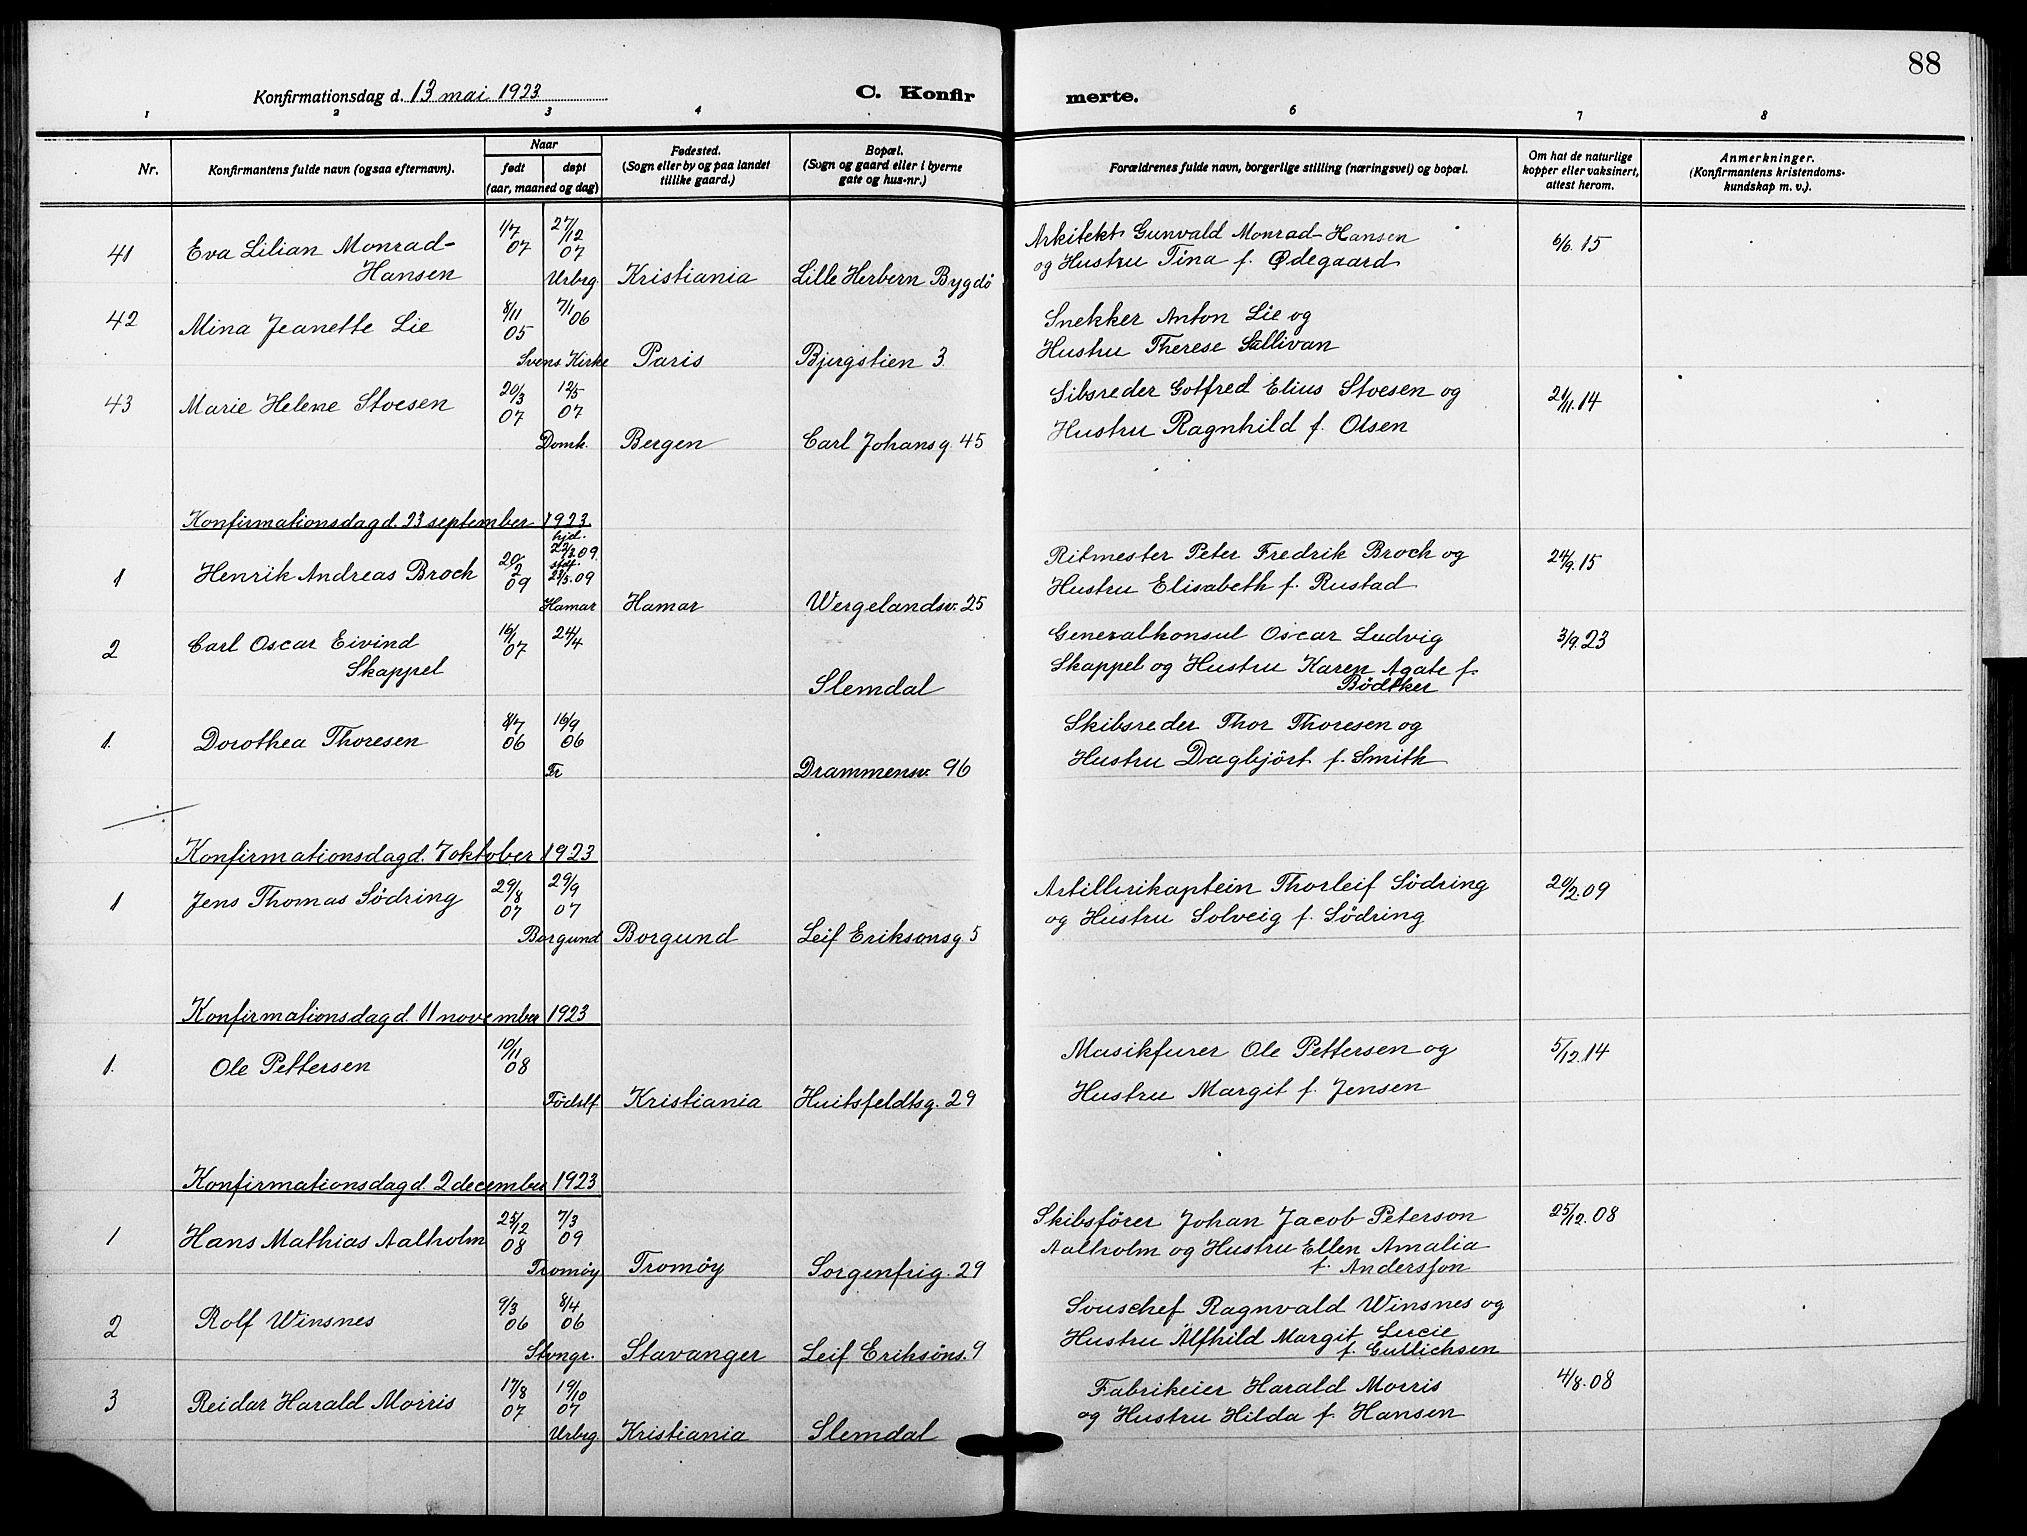 88
Konfirmationsdag d. 13 mai 1923
C. Konfirmerte.
1 2 3 4 6 7 8
Nr.
Konfirmantens fulde navn (ogsaa efternavn).
Naar
født
døpt
(aar, maaned og dag)
Fødested.
(Sogn eller by og paa landet
tillike gaard.)
Bopæl.
(Sogn og gaard eller i byerne
gate og hus-nr.)
Forældrenes fulde navn, borgerlige stilling (næringsvei) og bopæl.
Om hat de naturlige
kopper eller vaksinert,
attest herom.
Anmerkninger.
(Konfirmantens kristendoms-
kundskap m. v.).
41 Eva Lilian Monrad- 1/7 07 27/12 07 Arkitekt Gunvald Monrad-Hansen 6/6.15
Hansen Urbrg. Kristiania Lille Herbern Bygdö og Hustru Tina f. Ødegaard
42 Mina Jeanette Lie 8/11 05 7/1 06 Snekker Anton Lie og
Svens. Kirke Paris Bjergstien 3. Hustru Therese Sullivan
43 Marie Helene Stoesen 20/3 07 12/5 07 Sibsreder Gotfred Elius Stoesen og 21/11.14
Domk. Bergen Carl Johansg. 45 Hustru Ragnhild f. Olsen
Konfirmationsdag d. 23 september 1923.
1 Henrik Andreas Broch 20/2 09 hjd. 22/2.09. stdf. 23/5.09 Ritmester Peter Fredrik Broch og 24/9.15
Hamar Hamar Wergelandsv. 25 Hustru Elisabeth f. Rustad
2 Carl Oscar Eivind 16/1 07 24/4 Generalkonsul Oscar Ludvig 3/9.23
Skappel Slemdal Skappel og Hustru Karen Agate f.
Bödtker
1. Dorothea Thoresen 8/7 06 16/9 06 Skibsreder Thor Thoresen og
Tr Drammensv. 96 Hustru Dagbjört f. Smith
Konfirmationsdag d. 7 oktober 1923
1 Jens Thomas Södring 29/8 07 29/9 07 Artillerikaptein Thorleif Södring 20/2.09
Borgund Borgund Leif Eriksonsg 5 og Hustru Solveig f. Södring
Konfirmationsdag d. 11 november 1923
1. Ole Pettersen 10/11 08 Musikfurer Ole Pettersen og 5/12.14
Födslf Kristiania Huitsfeldtsg. 29 Hustru Margit f. Jensen
Konfirmationsdag d. 2 december 1923
1 Hans Mathias Aalholm 25/12 08 7/3 09 Skibsförer Johan Jacob Peterson 25/12.08
Tromöy Tromöy Sorgenfrig. 29 Aalholm og Hustru Ellen Amalia
f. Andersson
2 Rolf Winsnes 9/3 06 8/4 06 Souschef Ragnvald Winsnes og
Stvngr. Stavanger Leif Eriksöns. 9 Hustru Alfhild Margit Lucie
f. Gullichsen
3 Reidar Harald Morris 17/8 07 19/10 07 Fabrikeier Harald Morris 4/8.08
Urbrg. Kristiania Slemdal og Hustru Hilda f. Hansen